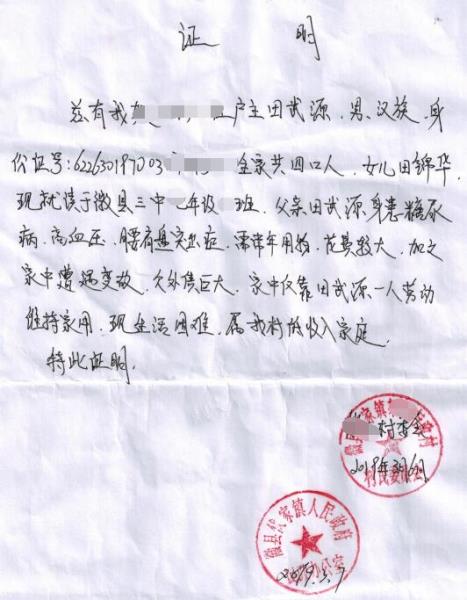 证 明
兹有我 户主田武源,男,汉族,身
份证号:622630197003 全家共四口人,女儿田锦华,
现就读于徽县三中 年级 班,父亲田武源身患糖尿
病,高血压,腰肩盘突出症,需常年用药,花费较大,加之
家中遭遇变故,欠外债巨大,家中仅靠田武源一人劳动
维持家用,现生活困难,属我村低收入家庭。
特此证明。
村委会
村民委员会
徽县伏家镇人民政府